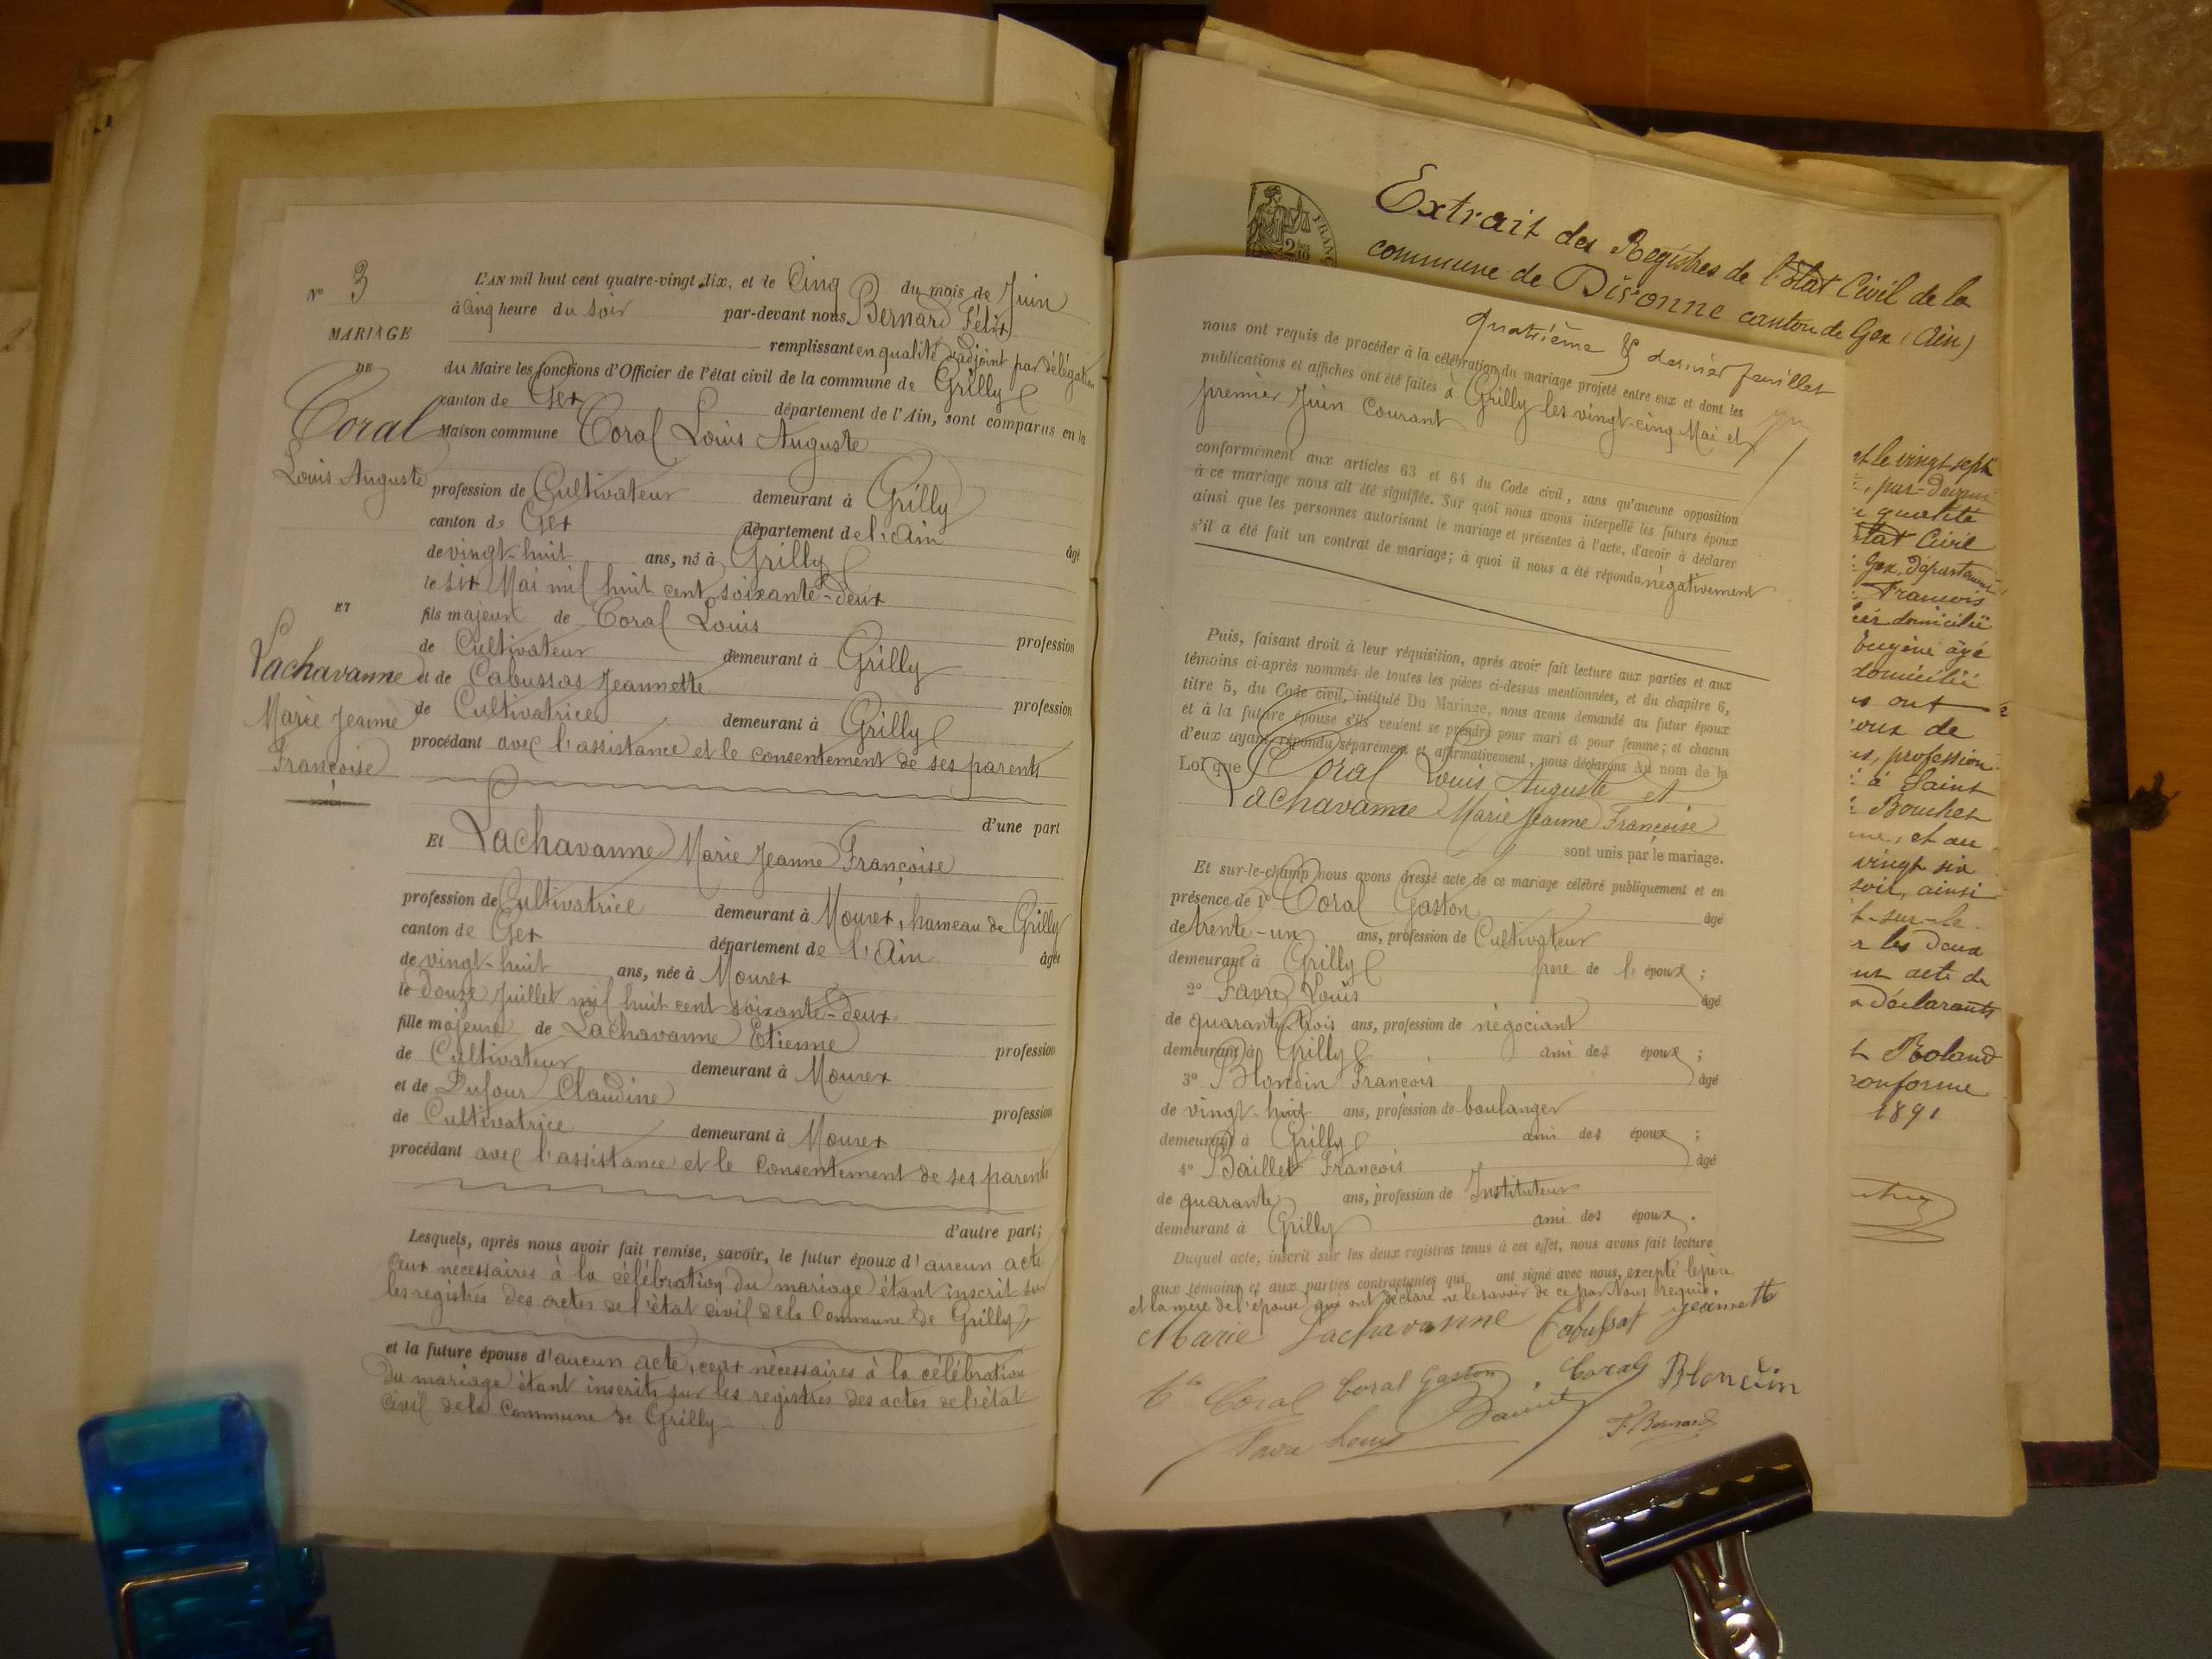 N° 3
MARIAGE
DE
Coral
Louis Auguste
ET
Lachavanne
Marie Jeanne
Françoise
L'AN mil huit cent quatre-vingt dix, et le Cinq du mois de Juin
à Cinq heure du soir par-devant nous Bernard Félix
remplissant en qualité d'adjoint par délégation
du Maire les fonctions d'Officier de l'état civil de la commune de Grilly
canton de Gex département de l'Ain, sont comparus en la
Maison commune Coral Louis Auguste
profession de Cultivateur demeurant à Grilly
canton de Gex département de l'Ain âgé
de vingt-huit ans, né à Grilly
le six Mai mil huit cent soixante-deux
fils majeur de Coral Louis profession
de Cultivateur demeurant à Grilly
et de Cabussas Jeannette profession
de Cultivatrice demeurant à Grilly
procédant avec l'assistance et le consentement de ses parents
d'une part
Et Lachavanne Marie Jeanne Françoise
profession de Cultivatrice demeurant à Mourex, hameau de Grilly
canton de Gex département de l'Ain âgée
de vingt-huit ans, née à Mourex
le douze Juillet mil huit cent soixante-deux
fille majeure de Lachavanne Etienne profession
de Cultivateur demeurant à Mourex
et de Dufour Claudine profession
de Cultivatrice demeurant à Mourex
procédant avec l'assistance et le Consentement de ses parents
d'autre part;
Lesquels, après nous avoir fait remise, savoir, le futur époux d'aucun acte
Ceux nécessaires à la célébration du mariage étant inscrit sur
les registres des actes de l'état civil de la Commune de Grilly
et la future épouse d'aucun acte, ceux nécessaires à la célébration
du mariage étant inscrits sur les registres des actes de l'état
Civil de la Commune de Grilly
Extrait des Registres de l'état Civil de la
commune de Divonne canton de Gex (Ain)
FRANC
quatrième & dernier feuillet
nous ont requis de procéder à la célébration du mariage projeté entre eux et dont les
publications et affiches ont été faites à Grilly les vingt-cinq Mai et
premier Juin Courant
conformément aux articles 63 et 64 du Code civil, sans qu'aucune opposition
à ce mariage nous ait été signifiée. Sur quoi nous avons interpellé les futurs époux
ainsi que les personnes autorisant le mariage et présentes à l'acte, d'avoir à déclarer
s'il a été fait un contrat de mariage; à quoi il nous a été répondu négativement
Puis, faisant droit à leur réquisition, après avoir fait lecture aux parties et aux
témoins ci-après nommés de toutes les pièces ci-dessus mentionnées, et du chapitre 6,
titre 5, du Code civil, intitulé Du Mariage, nous avons demandé au futur époux
et à la future épouse s'ils veulent se prendre pour mari et pour femme; et chacun
d'eux ayant répondu séparément et affirmativement, nous déclarons Au nom de la
Loi que Coral Louis Auguste et
Lachavanne Marie Jeanne Françoise
sont unis par le mariage.
Et sur-le-champ nous avons dressé acte de ce mariage célébré publiquement et en
présence de 1° Coral Gaston âgé
de trente-un ans, profession de Cultivateur
demeurant à Grilly frère de l'époux ;
2° Favre Louis âgé
de quarante-trois ans, profession de négociant
demeurant à Grilly ami des époux ;
3° Blondin François âgé
de vingt-huit ans, profession de boulanger
demeurant à Grilly ami des époux ;
4° Baillet François âgé
de quarante ans, profession de Instituteur
demeurant à Grilly ami des époux.
Duquel acte, inscrit sur les deux registres tenus à cet effet, nous avons fait lecture
aux témoins et aux parties contractantes qui ont signé avec nous, excepté le père
et la mère de l'épouse qui ont déclaré ne le savoir de ce par Nous requis.
Marie Lachavanne Cabussat Jeannette
Coral Coral Gaston Coral Blondin
Favre Louis F. Bernard
et le vingt sept
qualité
état Civil
Gex, département
François
domicilié
Eugène âgé
domicilié
ont
de
profession
à Saint
Bouchet
et au
vingt six
soir, ainsi
sur-le
les deux
acte de
déclarants
Roland
conforme
1891